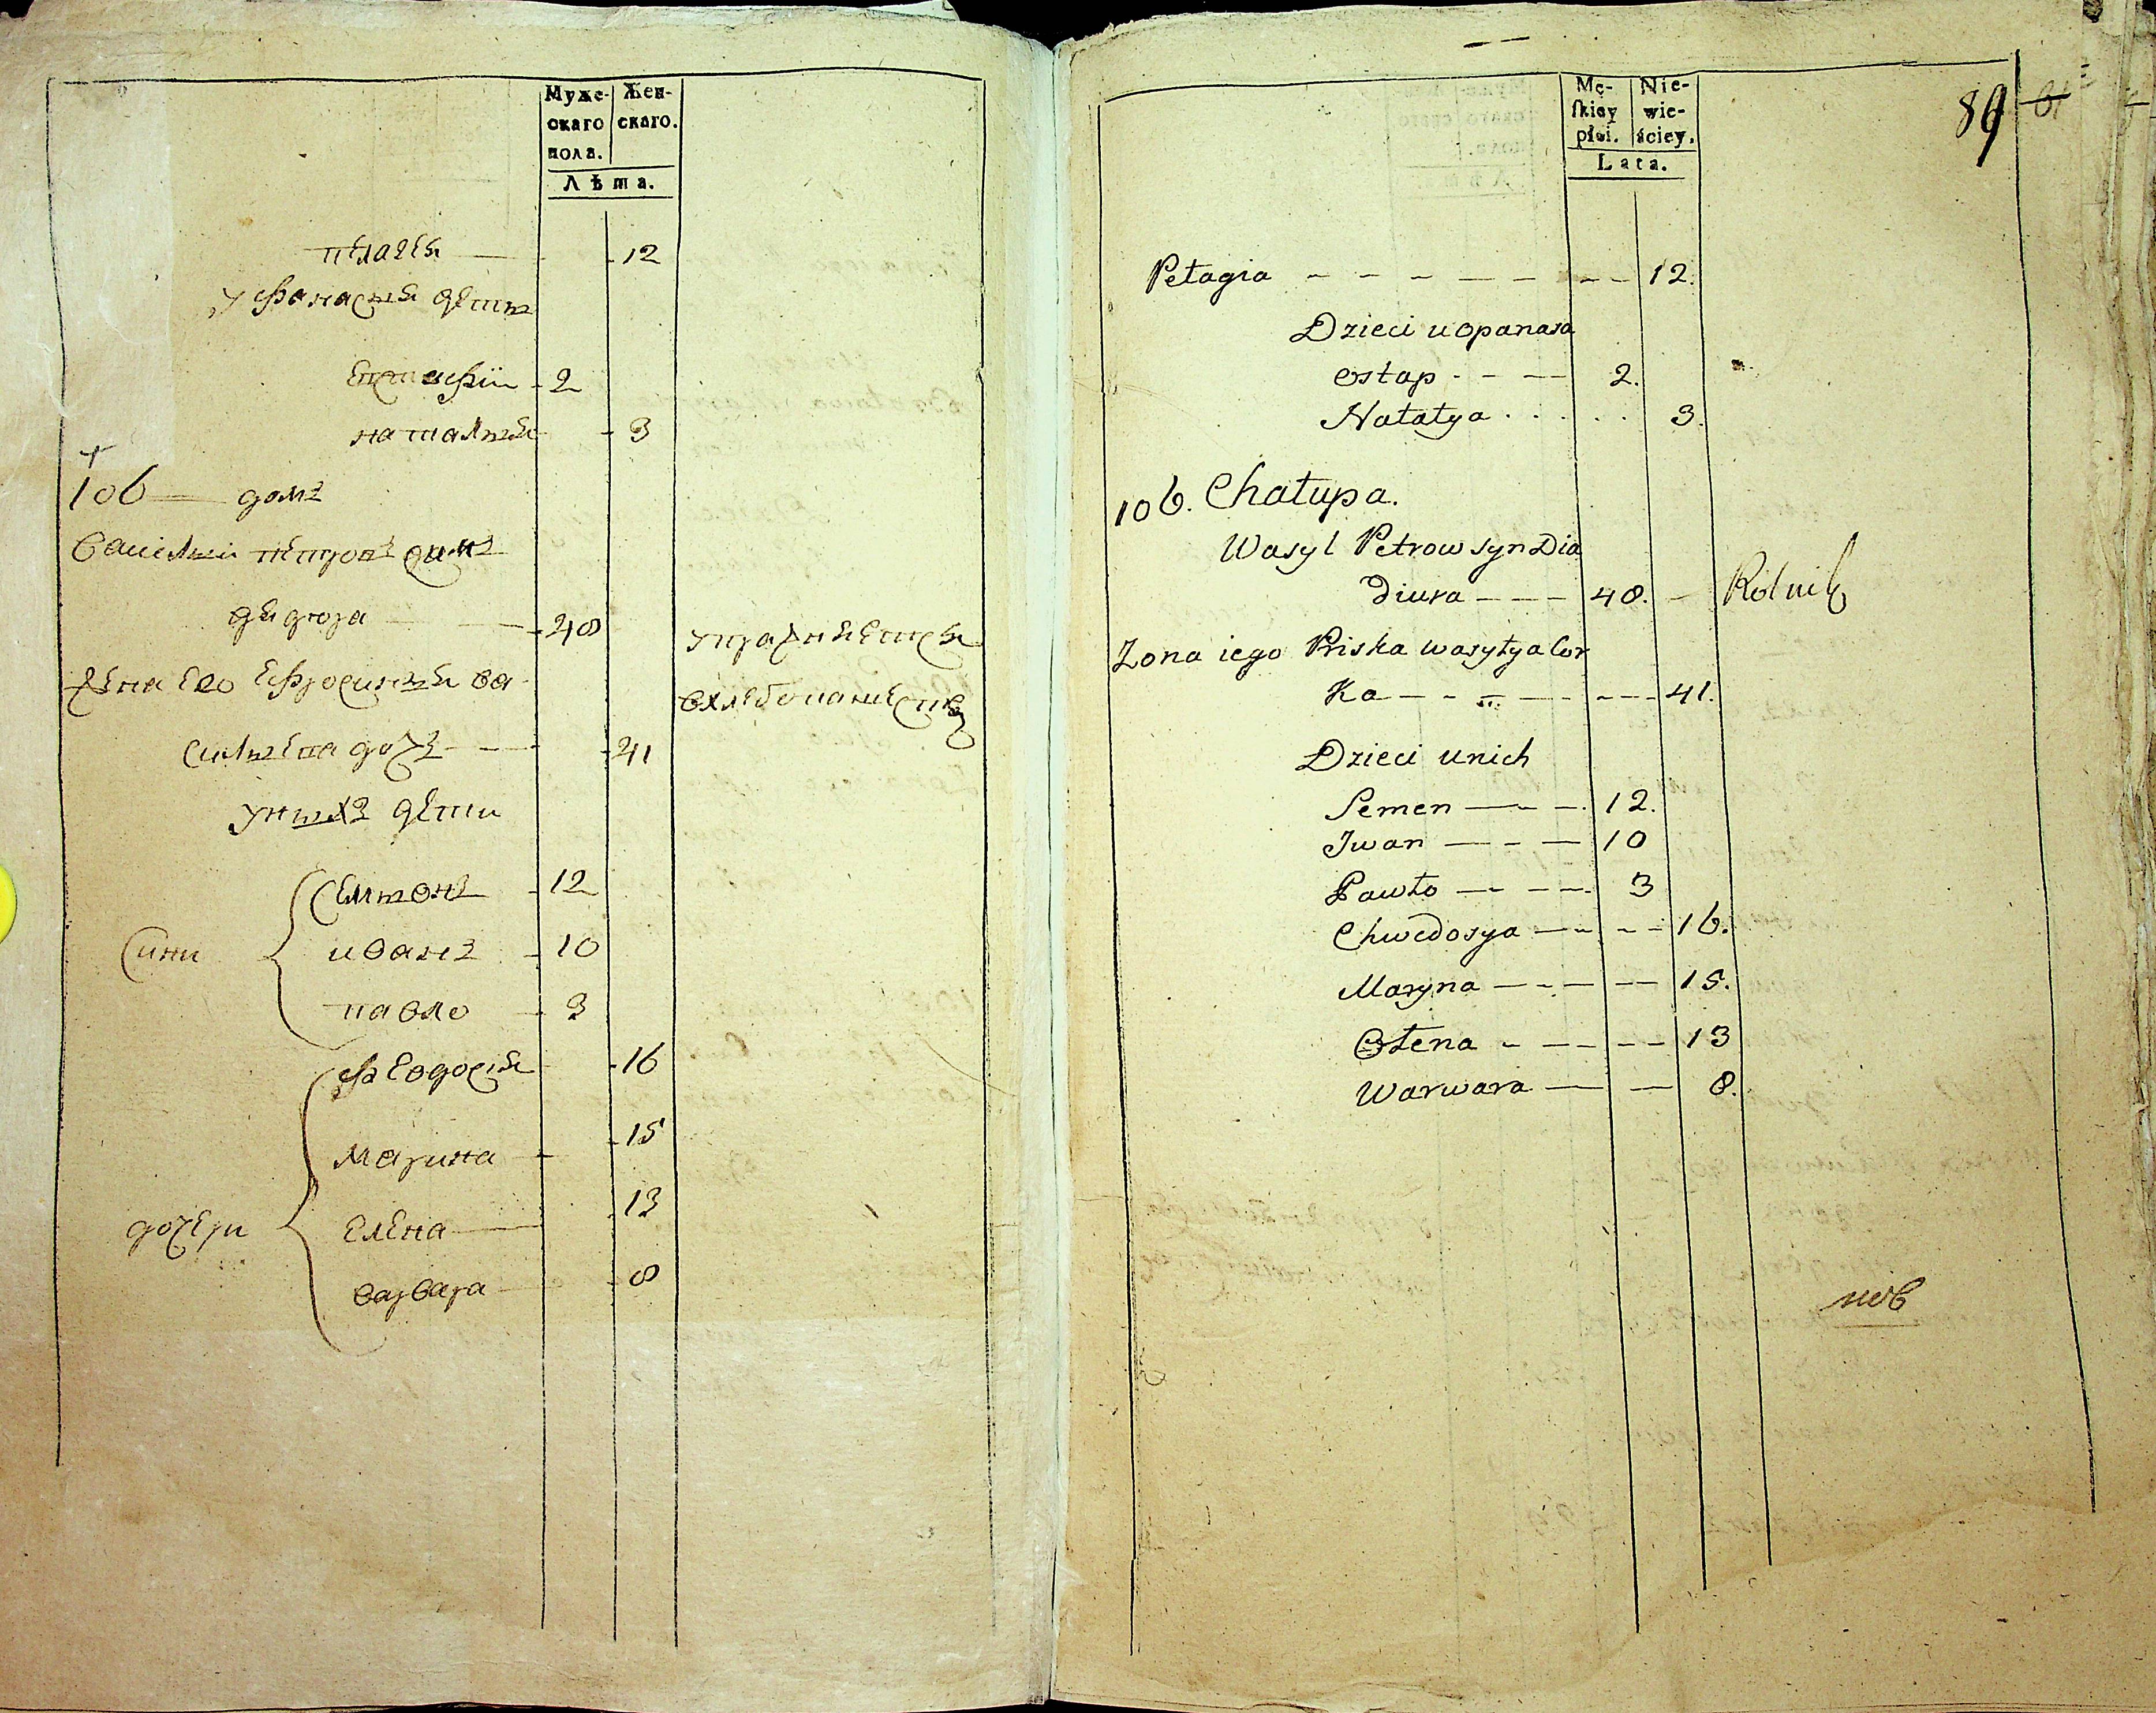 Муже- Жен-
скаго скаго.
пола.
Лѣта.
пелагея 12
У афанасия дети
Евстафіи 2
наталия 3
106 домъ
Василии петровъ синъ
дядюра 48 упражняется
Жена Ево Ефросиния ва в хлебопашестве
силиева дочь 41
У нихъ дети
Сини
Симионъ 12
иванъ 10
павло 3
дочери
феодосия 16
Марина 15
Елена 13
варвара 8
Mę- Nie-
skiey wie-
płci. ściey.
Lata.
89
Petagia 12.
Dzieci u opanasa
Ostap 2.
Natatya 3.
106. Chatupa.
Wasyl Petrow syn Dia
diura 48. Rolnik
Zona iego Priska wasytya Cor
Ka 41.
Dzieci unich
Semen 12.
Jwan 10
Pawło 3
Chwedosya 16.
Maryna 15.
Ołena 13
Warwara 8.